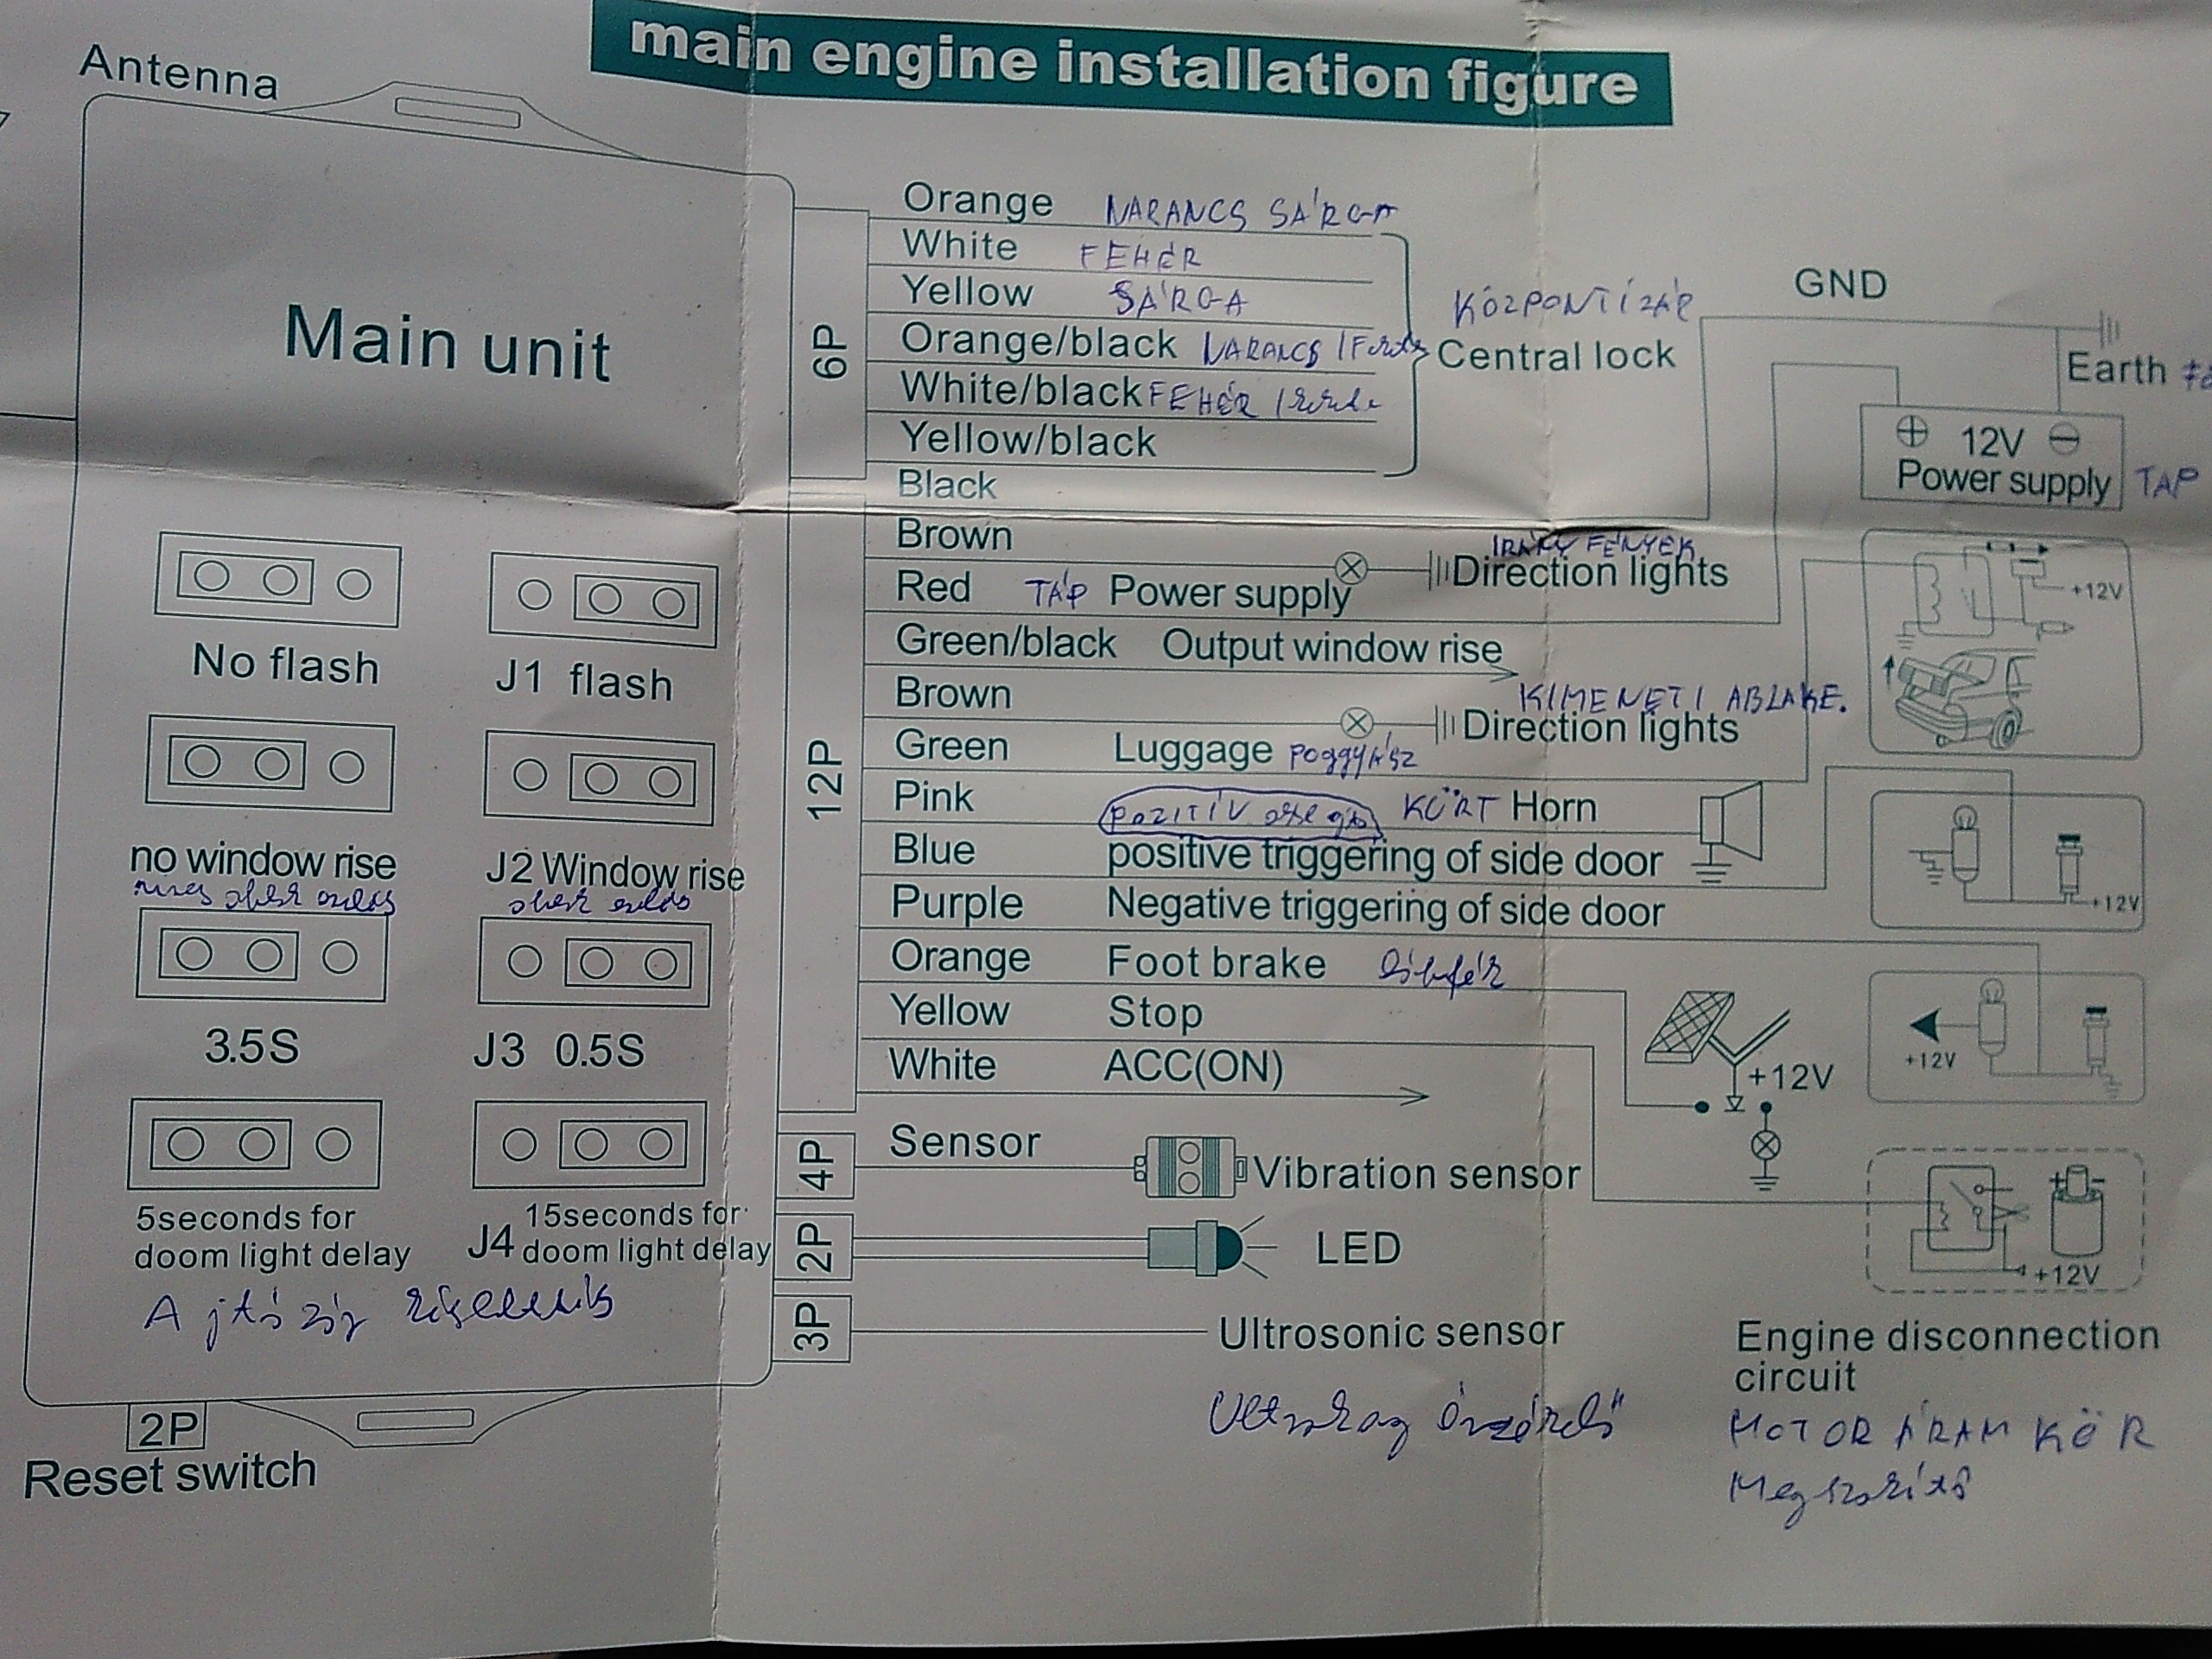 main engine installation figure
Antenna
Main unit
Orange NARANCS SÁRGA
White FEHÉR
Yellow SÁRGA
Orange/black NARANCS
White/black FEHÉR
Yellow/black
6P
KÖZPONTIZÁR
Central lock
GND
Earth
12V
Power supply TAP
Black
Brown
IRÁNY FÉNYEK
Direction lights
Red TÁP Power supply
Green/black Output window rise
KIMENETI ABLAKE.
Brown Direction lights
Green Luggage POGGYÁSZ
Pink POZITIV KÜRT Horn
Blue positive triggering of side door
Purple Negative triggering of side door
Orange Foot brake
Yellow Stop
White ACC(ON)
12P
+12V
+12V
+12V
+12V
+12V
4P Sensor Vibration sensor
2P LED
3P Ultrosonic sensor
Engine disconnection
circuit
MOTOR ÁRAM KÖR
No flash
J1 flash
no window rise
J2 Window rise
3.5S
J3 0.5S
5seconds for
doom light delay
J4 15seconds for
doom light delay
2P
Reset switch